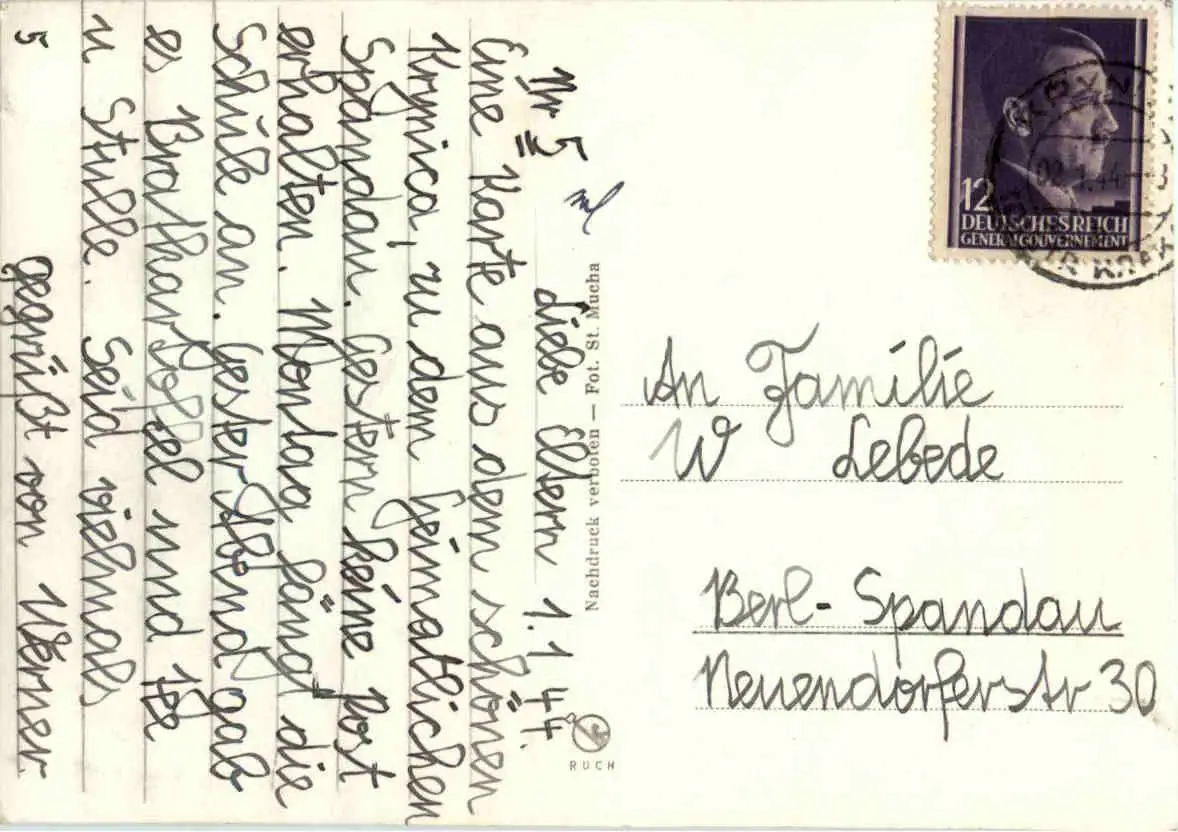 Nr 5
Liebe Eltern 1.1.44.
Eine Karte aus dem schönen
Krynica, zu dem heimatlichen
Spandau. Gestern keine Post
erhalten. Montag fängt die
Schule an. Gester Abend gab
es Bratkartoffel und Tee
u Stulle. Seid vielmals
gegrüßt von Werner.
5
Nachdruck verboten — Fot. St. Mucha
RUCH
12
DEUTSCHES REICH
GENERALGOUVERNEMENT
An Familie
W Lebede
Berl-Spandau
Neuendorferstr 30